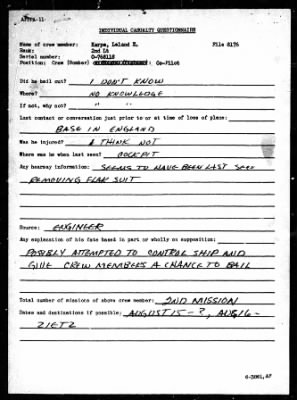 AFPPA-11
INDIVIDUAL CASUALTY QUESTIONNAIRE
Name of crew member: Karpe, Leland E. File 8176
Rank: 2nd Lt
Serial number: 0-768118
Position: Crew (Bomber) Co-Pilot
Did he bail out? I DON'T KNOW
Where? NO KNOWLEDGE
If not, why not? " "
Last contact or conversation just prior to or at time of loss of plane:
BASE IN ENGLAND
Was he injured? I THINK NOT
Where was he when last seen? COCKPIT
Any hearsay information: SEEMS TO HAVE BEEN LAST SEEN
REMOVING FLAK SUIT
Source: ENGINEER
Any explanation of his fate based in part or wholly on supposition:
POSSIBLY ATTEMPTED TO CONTROL SHIP AND
GIVE CREW MEMBERS A CHANCE TO BAIL
Total number of missions of above crew member: 2ND MISSION
Dates and destinations if possible: AUGUST 15 - ?, AUG 16 -
ZIETZ
6-3861, AF